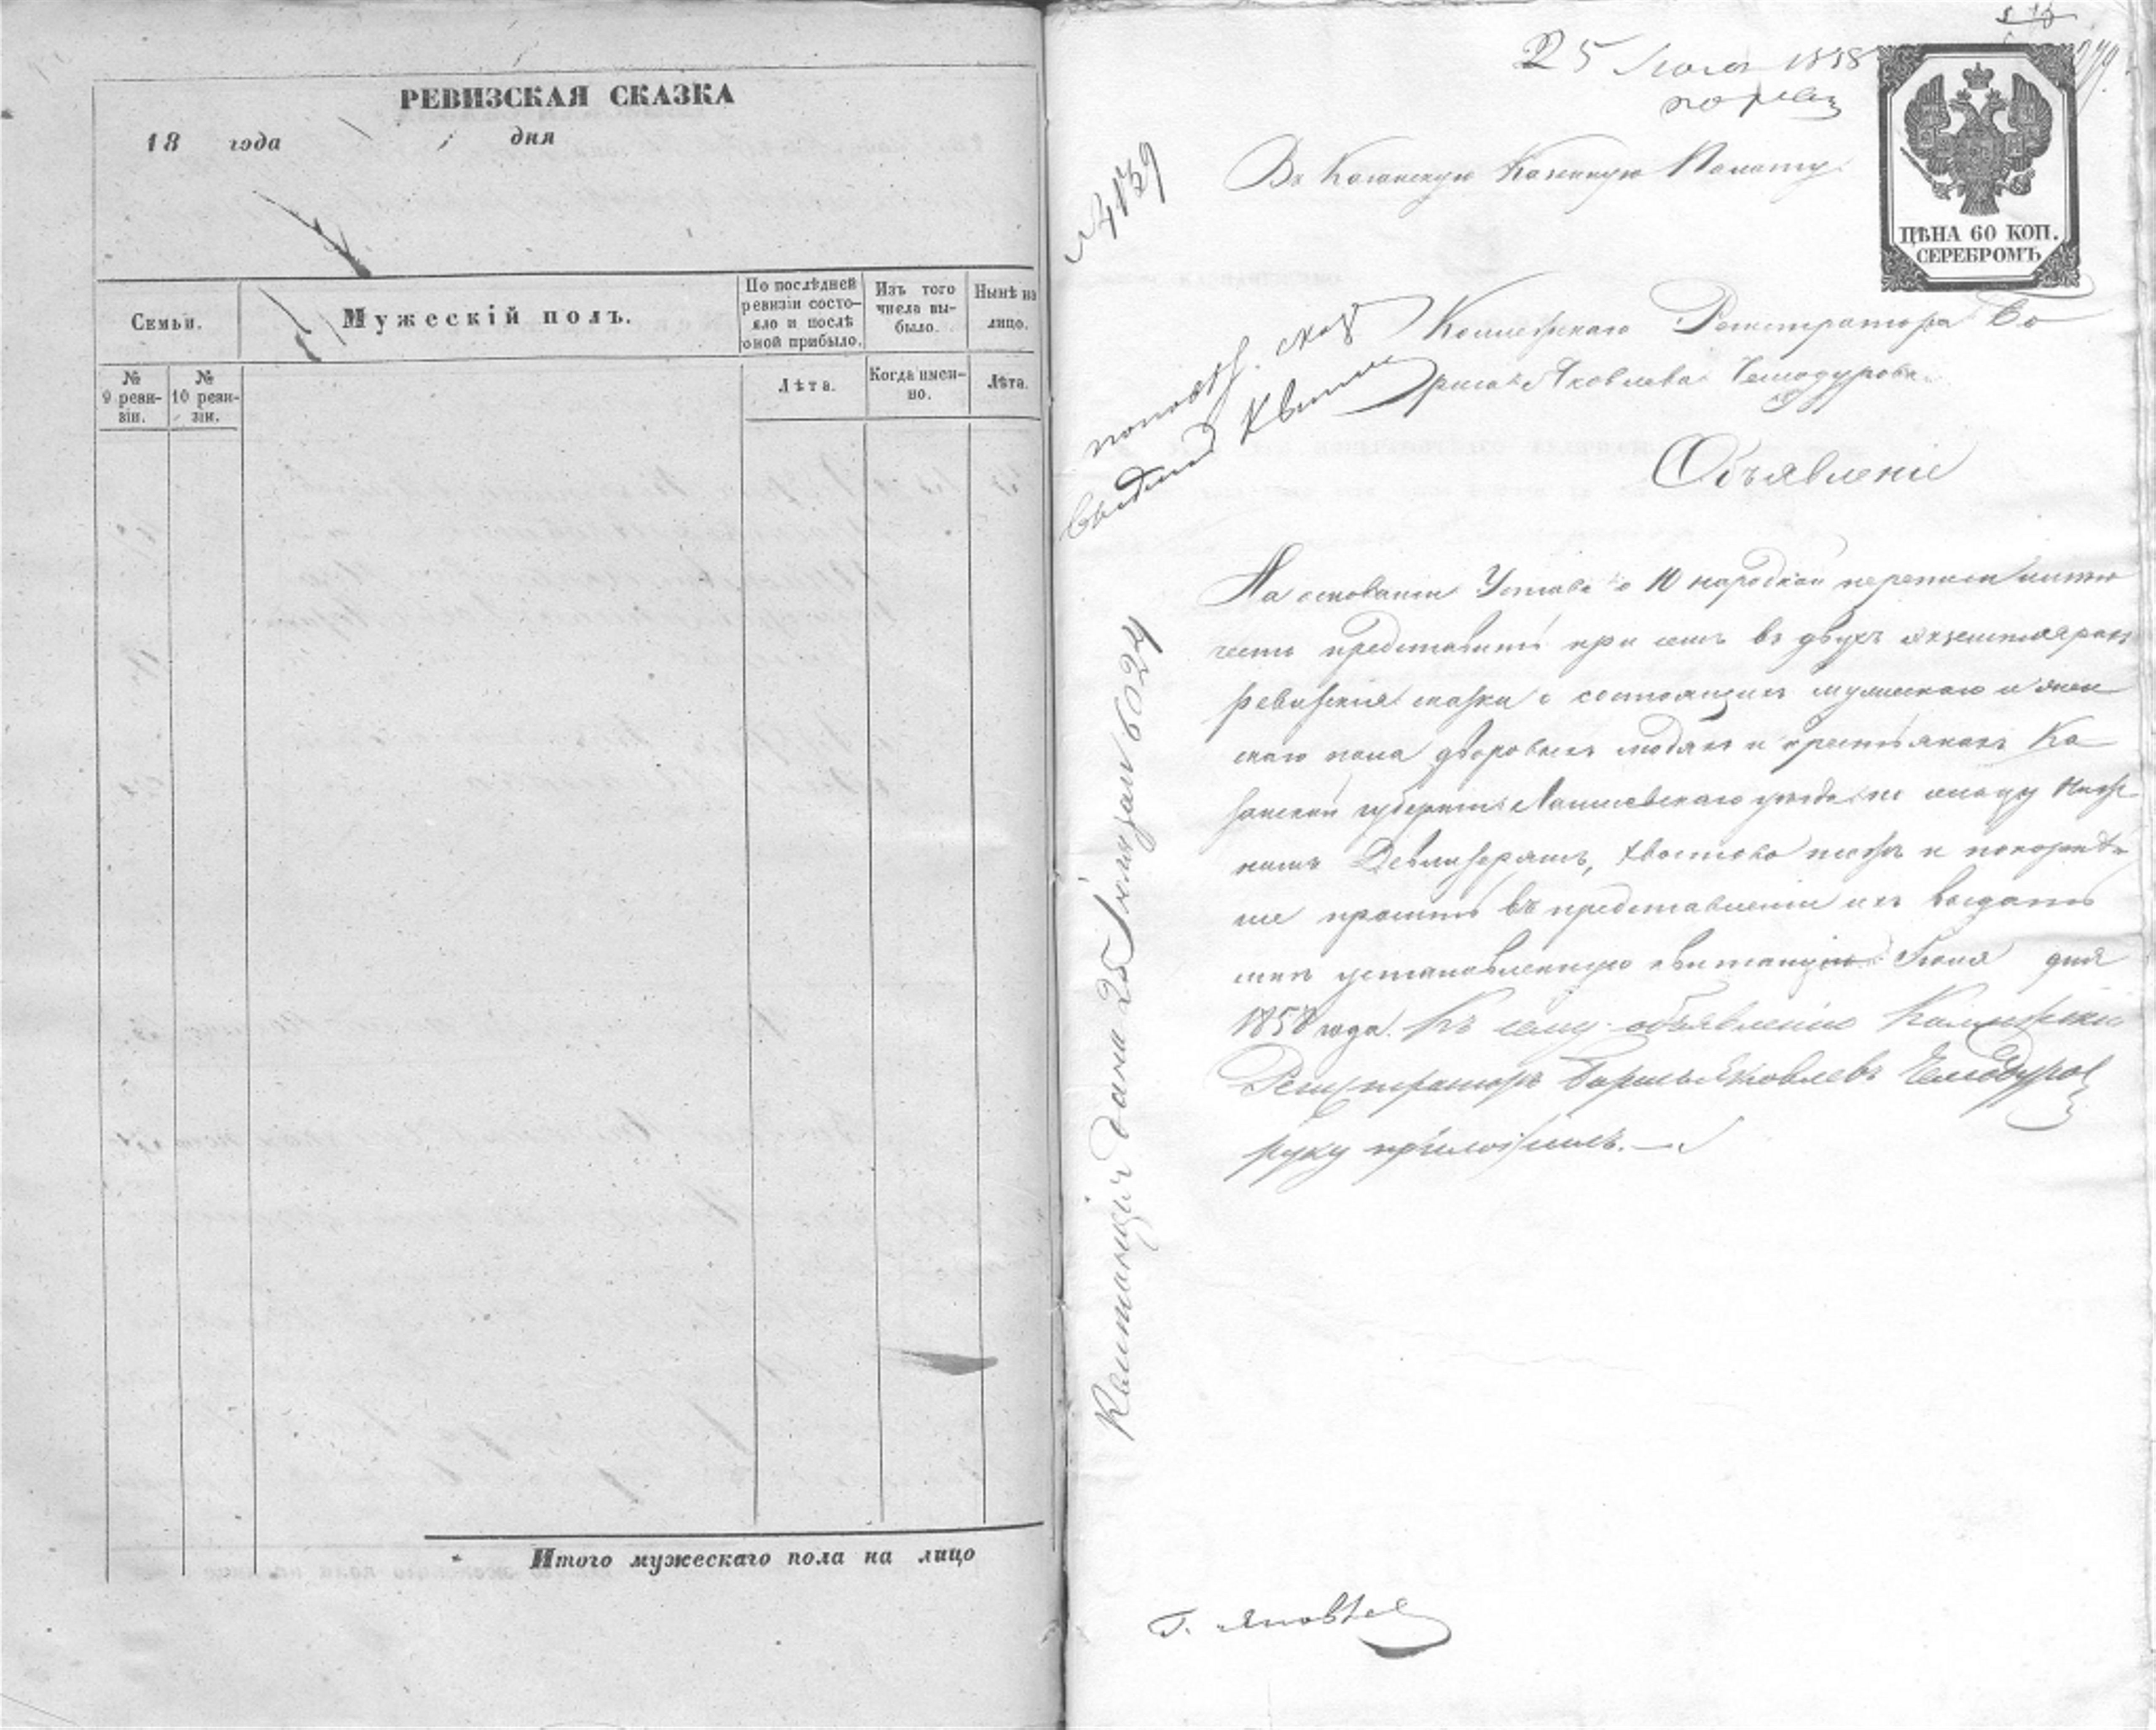 РЕВИЗСКАЯ СКАЗКА
18 года дня
Семьи.
Мужескій полъ.
По послѣдней ревизіи состо-
яло и послѣ оной прибыло.
Изъ того числа вы-
было.
Нынѣ на лицо.
№ 9 реви-
зіи.
№ 10 реви-
зіи.
Лѣта.
Когда имен-
но.
Лѣта.
Итого мужескаго пола на лицо
25 1858
№ 4139
ЦѢНА 60 КОП.
СЕРЕБРОМЪ
Въ Казанскую Казенную Палату
Коллежскаго Регистратора Бо
риса Яковлева Чемодурова
Объявленіе
На основаніи Устава о 10 народной переписи имѣю
честь представить при семъ въ двухъ экземплярахъ
ревизскія сказки о состоящихъ мужескаго и жен
скаго пола дворовыхъ людяхъ и крестьянахъ Ка
занской губерніи Лаишевскаго уѣзда по сельцу
Девлизерямъ, Хвостово тожъ и покорнѣй
ше просить въ представленіи ихъ выдать
мнѣ установленную квитанцію Іюня дня
1858 года. Къ сему объявленію Коллежскій
Регистраторъ Борисъ Яковлевъ Чемодуровъ
руку приложилъ.
Квитанція дана 25 Іюня за № 6024
Г. Яковлев